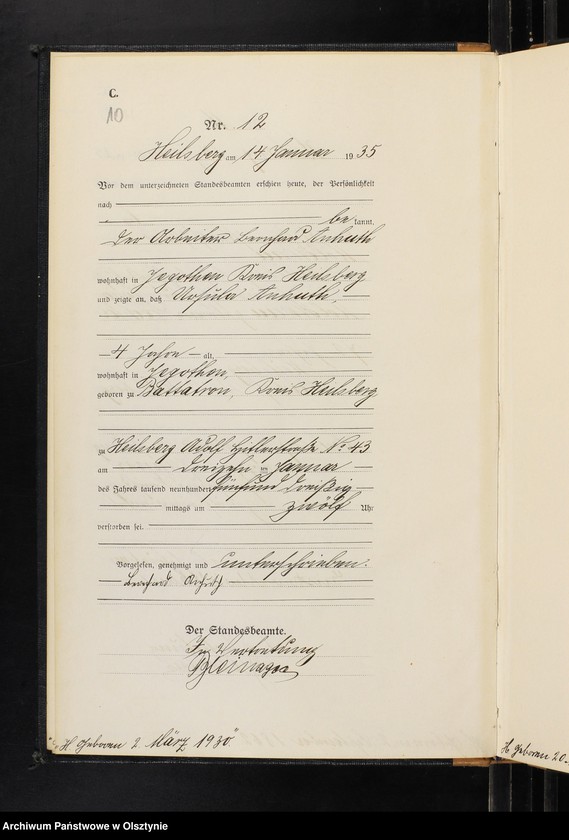 C.
10
Nr. 12
Heilsberg am 14 Januar 1935
Vor dem unterzeichneten Standesbeamten erschien heute, der Persönlichkeit
nach
be kannt,
der Arbeiter Bernhard Anhuth
wohnhaft in Jegothen Kreis Heilsberg
und zeigte an, daß Ursula Anhuth
4 Jahre alt,
wohnhaft in Jegothen,
geboren zu Battatron, Kreis Heilsberg
zu Heilsberg Adolf Hitlerstraße No 43
am dreizehn ten Januar
des Jahres tausend neunhundert fünfund dreißig
mittags um zwölf Uhr
verstorben sei.
Vorgelesen, genehmigt und unterschrieben.
Bernhard Anhuth
Der Standesbeamte.
In Vertretung
"H. Geboren 2 März 1930"
H. Geboren 20.
Archiwum Państwowe w Olsztynie